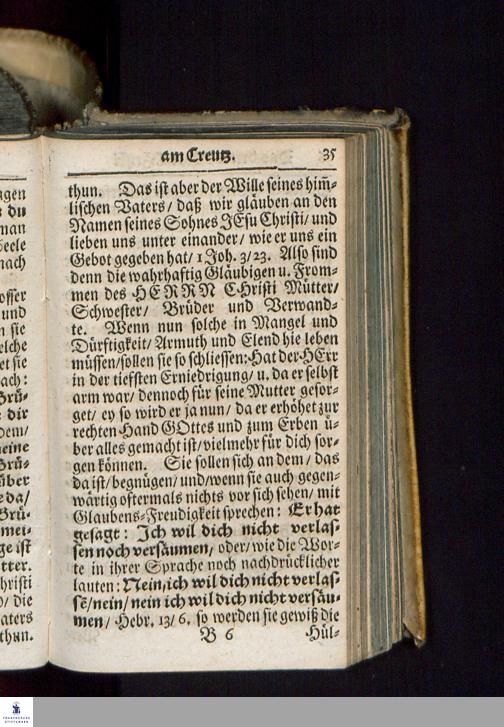 am Creutz. 35
thun. Das ist aber der Wille seines him̃-
lischen Vaters/ daß wir gläuben an den
Namen seines Sohnes JEsu Christi/ und
lieben uns unter einander/ wie er uns ein
Gebot gegeben hat/ 1 Joh. 3/23. Also sind
denn die wahrhaftig Gläubigen u. From-
men des HERRN CHristi Mütter/
Schwester/ Brüder und Verwand-
te. Wenn nun solche in Mangel und
Dürftigkeit/ Armuth und Elend hie leben
müssen/ sollen sie so schliessen: Hat der HErr
in der tiefsten Erniedrigung/ u. da er selbst
arm war/ dennoch für seine Mutter gesor-
get/ ey so wird er ja nun/ da er erhöhet zur
rechten Hand GOttes und zum Erben ü-
ber alles gemacht ist/ vielmehr für dich sor-
gen können. Sie sollen sich an dem/ das
da ist/ begnügen/ und/ wenn sie auch gegen-
wärtig oftermals nichts vor sich sehen/ mit
Glaubens-Freudigkeit sprechen: Er hat
gesagt: Jch wil dich nicht verlas-
sen noch versäumen/ oder/ wie die Wor-
te in ihrer Sprache noch nachdrücklicher
lauten: Nein, ich wil dich nicht verlas-
sẽ/ nein/ nein ich wil dich nicht versäu-
men/ Hebr. 13/6. so werden sie gewiß die
B 6 Hül-